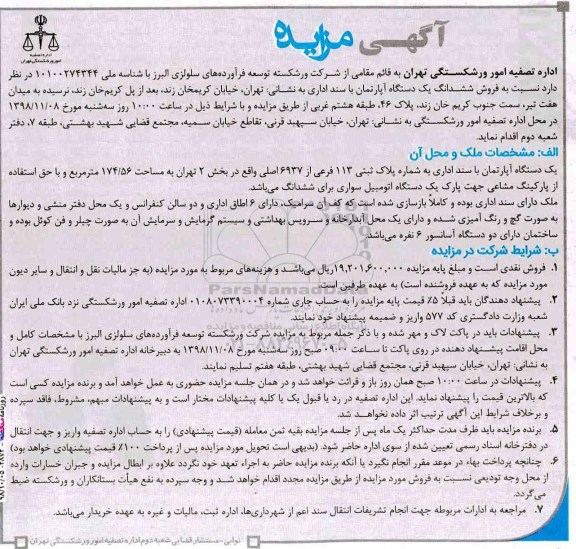 آگهی مزایده
اداره تصفیه
امور ورشکستگی تهران
اداره تصفیه امور ورشکستگی تهران به قائم مقامی از شرکت ورشکسته توسعه فرآورده‌های سلولزی البرز با شناسه ملی ۱۰۱۰۰۲۷۴۳۴۴ در نظر
دارد نسبت به فروش ششدانگ یک دستگاه آپارتمان با سند اداری به نشانی: تهران، خیابان کریمخان زند، بعد از پل کریم‌خان زند، نرسیده به میدان
هفت تیر، سمت جنوب کریم خان زند، پلاک ۴۶، طبقه هشتم غربی از طریق مزایده و با شرایط ذیل در ساعت ۱۰:۰۰ روز سه‌شنبه مورخ ۱۳۹۸/۱۱/۰۸
در محل اداره تصفیه امور ورشکستگی به نشانی: تهران، خیابان سپهبد قرنی، تقاطع خیابان سمیه، مجتمع قضایی شهید بهشتی، طبقه ۷، دفتر
شعبه دوم اقدام نماید.
الف: مشخصات ملک و محل آن
یک دستگاه آپارتمان با سند اداری به شماره پلاک ثبتی ۱۱۳ فرعی از ۶۹۳۷ اصلی واقع در بخش ۲ تهران به مساحت ۱۷۴/۵۶ مترمربع و با حق استفاده
از پارکینگ مشاعی جهت پارک یک دستگاه اتومبیل سواری برای ششدانگ می‌باشد.
ملک دارای سند اداری بوده و کاملاً بازسازی شده است که کف آن سرامیک، دارای ۶ اطاق اداری و دو سالن کنفرانس و یک محل دفتر منشی و دیوارها
به صورت گچ و رنگ آمیزی شده و دارای یک محل آبدارخانه و سرویس بهداشتی و سیستم گرمایش و سرمایش آن به صورت چیلر و فن کوئل بوده و
ساختمان دارای دو دستگاه آسانسور ۶ نفره می‌باشد.
ب: شرایط شرکت در مزایده
۱. فروش نقدی است و مبلغ پایه مزایده ۱۹,۲۰۱,۶۰۰,۰۰۰ریال می‌باشد و هزینه‌های مربوط به مورد مزایده (به جز مالیات نقل و انتقال و سایر دیون
مورد مزایده که به عهده فروشنده است) به عهده طرفین است.
۲. پیشنهاد دهندگان باید قبلاً ۵٪ قیمت پایه مزایده را به حساب جاری شماره ۰۱۰۸۰۷۳۳۹۰۰۰۴ اداره تصفیه امور ورشکستگی نزد بانک ملی ایران
شعبه وزارت دادگستری کد ۵۷۷ واریز و ضمیمه پیشنهاد خود نمایند.
۳. پیشنهادات باید در پاکت لاک و مهر شده و با ذکر جمله مربوط به مزایده شرکت ورشکسته توسعه فرآورده‌های سلولزی البرز با مشخصات کامل و
محل اقامت پیشنهاد دهنده در روی پاکت تا ساعت ۰۹:۰۰ صبح روز سه‌شنبه مورخ ۱۳۹۸/۱۱/۰۸ به دبیرخانه اداره تصفیه امور ورشکستگی تهران
به نشانی: تهران، خیابان سپهبد قرنی، مجتمع قضایی شهید بهشتی، طبقه هفتم تسلیم نمایند.
۴. پیشنهادات در ساعت ۱۰:۰۰ صبح همان روز باز و قرائت خواهد شد و در همان جلسه مزایده حضوری به عمل خواهد آمد و برنده مزایده کسی است
که بالاترین قیمت را پیشنهاد نماید، این اداره تصفیه در رد یا قبول یک یا کلیه پیشنهادات مختار است و به پیشنهادات مبهم، مشروط، فاقد سپرده
و برخلاف شرایط این آگهی ترتیب اثر داده نخواهد شد.
۵. برنده مزایده باید ظرف مدت حداکثر یک ماه پس از جلسه مزایده بقیه ثمن معامله (قیمت پیشنهادی) را به حساب اداره تصفیه واریز و جهت انتقال
در دفترخانه اسناد رسمی تعیین شده از سوی اداره حاضر شود. (بدیهی است تحویل مورد مزایده پس از پرداخت ۱۰۰٪ قیمت پیشنهادی خواهد بود)
۶. چنانچه پرداخت بهاء در موعد مقرر انجام نگیرد یا آنکه برنده مزایده حاضر به اجراء تعهد خود نگردد علاوه بر ابطال مزایده و جبران خسارات وارده
از محل وجه تودیعی نسبت به فروش مورد مزایده از طریق مزایده مجدد اقدام خواهد شد و وجه سپرده به نفع هیأت بستانکاران و ورشکسته ضبط
می‌گردد.
۷. مراجعه به ادارات مربوطه جهت انجام تشریفات انتقال سند اعم از شهرداری‌ها، اداره ثبت، مالیات و غیره به عهده خریدار می‌باشد.
نوابی - مستشار قضایی شعبه دوم اداره تصفیه امور ورشکستگی تهران
ParsNamadData